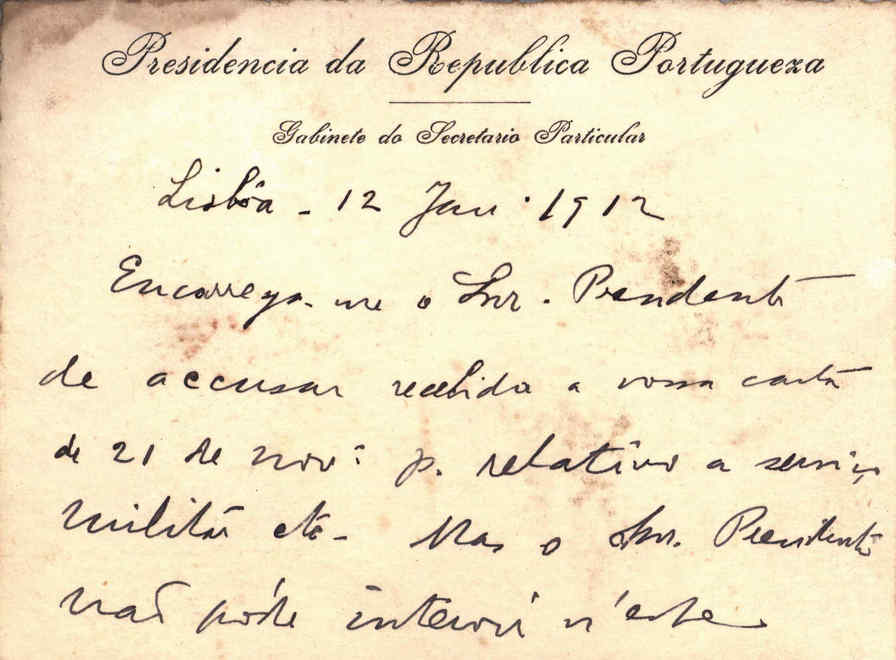 Presidencia da Republica Portugueza
Gabinete do Secretario Particular
Lisbôa - 12 Jan. 1912
Encarrega-me o Snr. Presidente
de accusar recebida a vossa carta
de 21 de nov. p. relativo a serviço
militar etc. Mas o Snr. Presidente
não póde intervir n'este